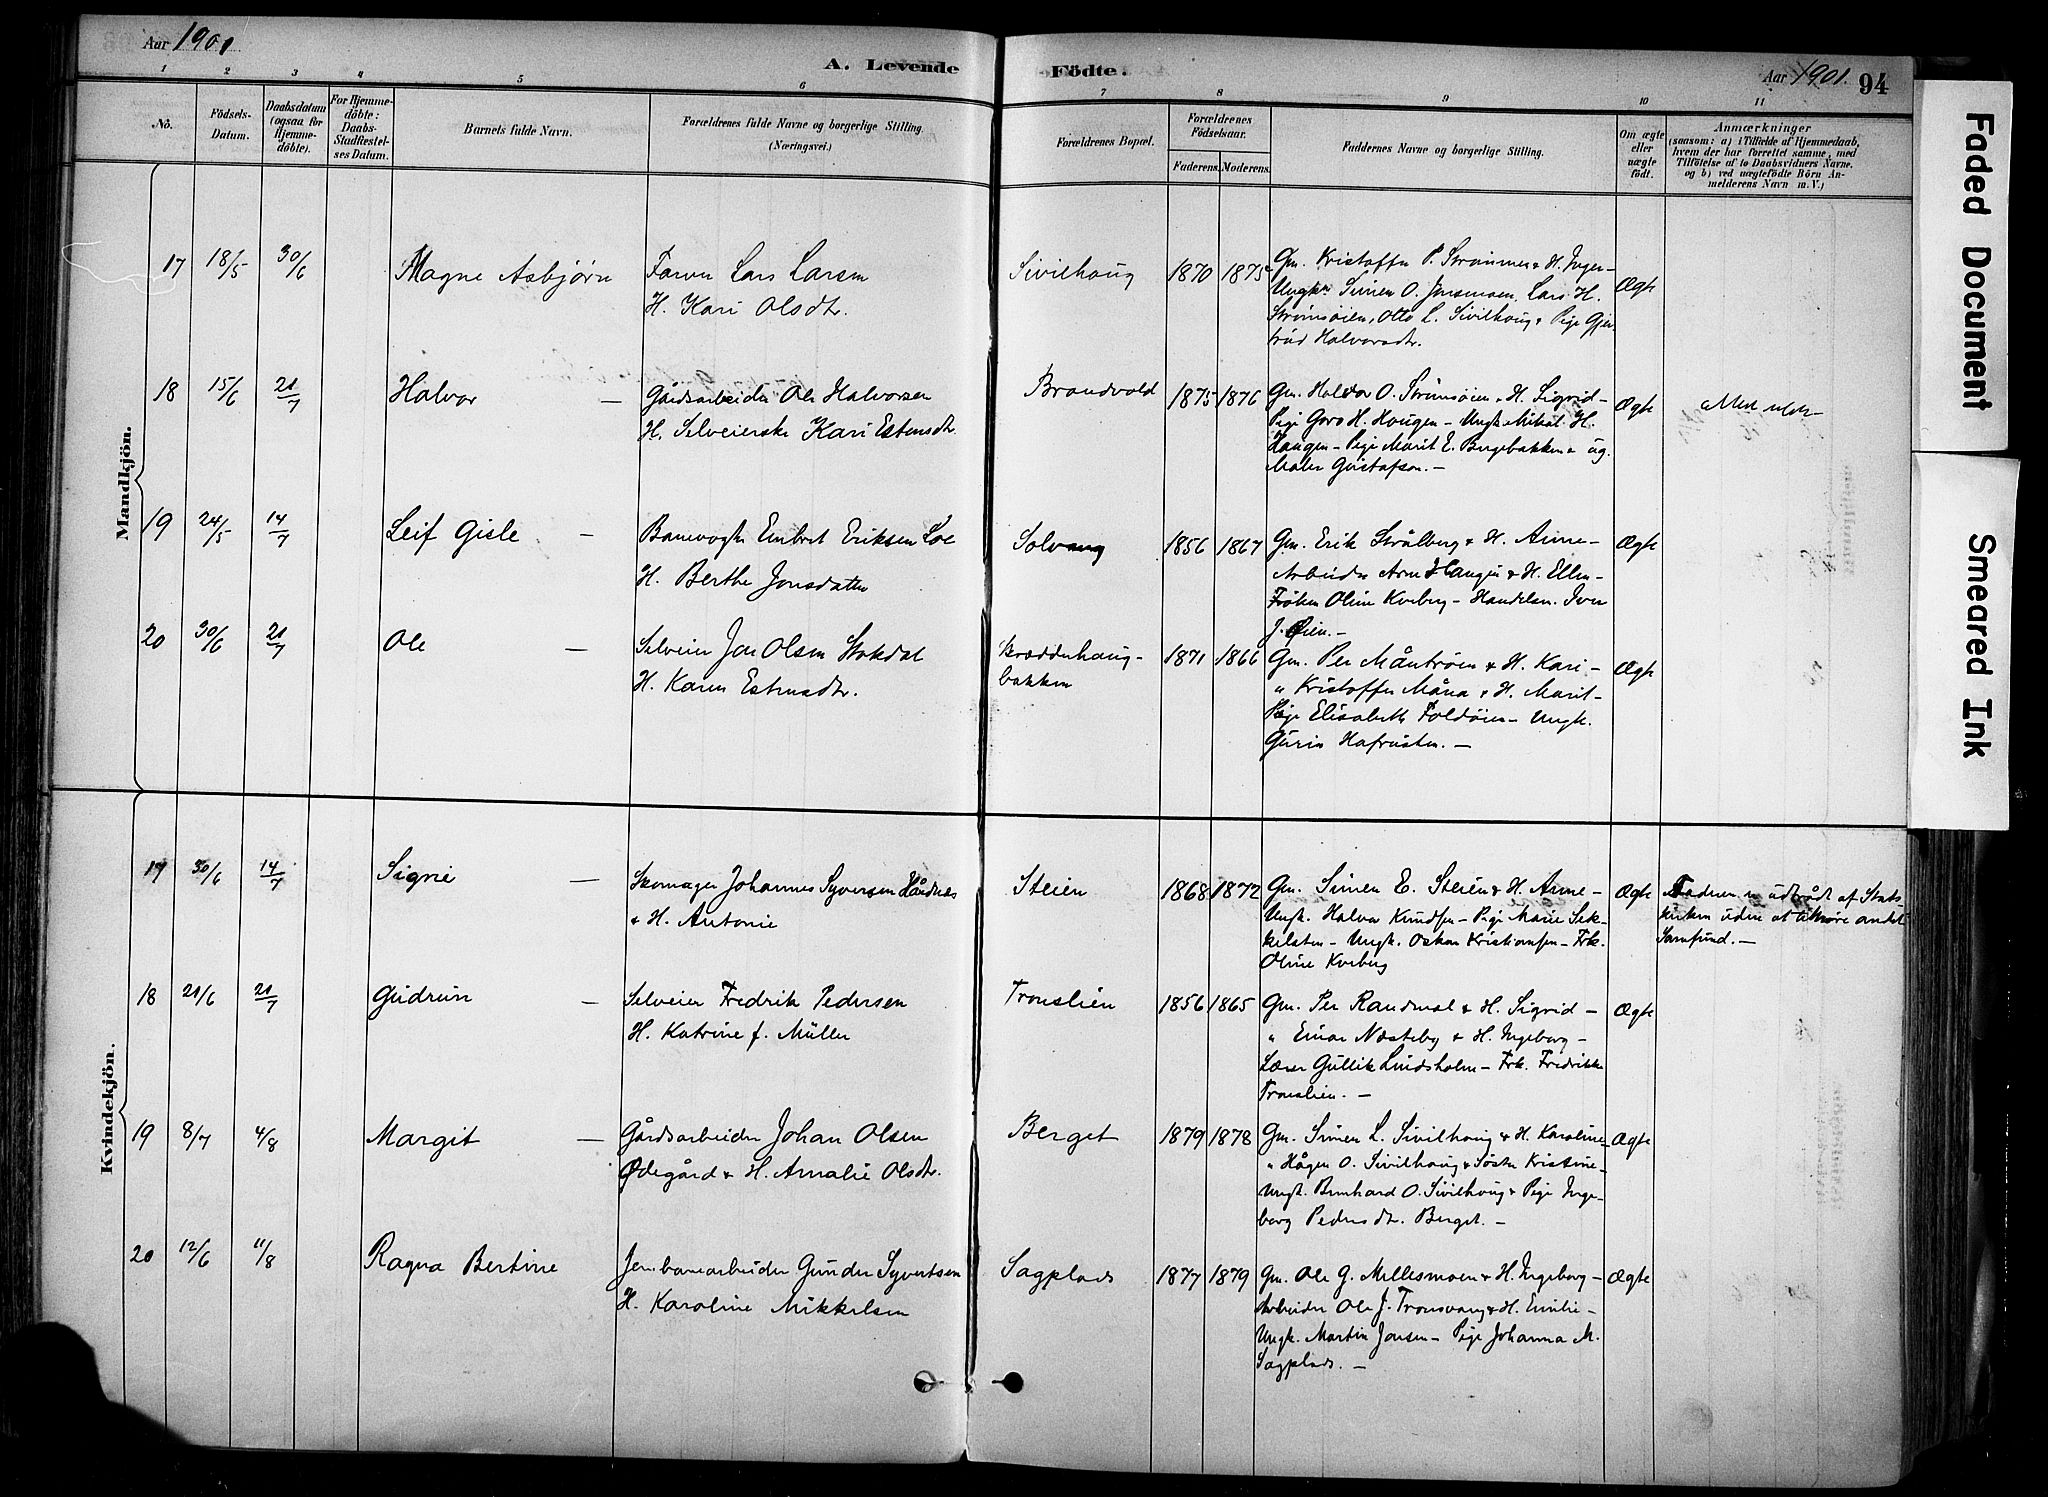 Aar 1901.
A. Levende Födte.
Aar 1901. 94
1 2 3 4 5 6 7 8 9 10 11
No.
Födsels-Datum.
Daabsdatum (ogsaa for Hjemme-döbte).
For Hjemme-döbte: Daabs-Stadfæstel-ses Datum.
Barnets fulde Navn.
Forældrenes fulde Navne og borgerlige Stilling. (Næringsvei.)
Forældrenes Bopæl.
Forældrenes Födselsaar.
Faderens. Moderens.
Faddernes Navne og borgerlige Stilling.
Om ægte eller uægte födt.
Anmærkninger
(saasom: a) i Tilfælde af Hjemmedaab,
hvem der har forrettet samme, med
Tilföielse af to Daabsvidners Navne.
og b) ved uægtefödte Börn An-
melderens Navn m. V.)
Mandkjön.
17 18/5 30/6 Magne Asbjørn Farver Lars Larsen Sivilhaug 1870 1875 Gm. Kristoffer P. Strømmen & H. Inger- Ægte
H. Kari Olsdtr. Ungk. Simen O. Jensmoen, Lars H.
Strømsøien, Otto L. Sivilhaug & Pige Gjer-
trud Halvorsdtr.
18 15/6 21/7 Halvor – Gårdsarbeider Ole Halvorsen Brandvold 1875 1876 Gm. Halvor O. Strømsøien & H. Sigrid- Ægte
H. Selveierske Kari Estensdtr. Pige Goro H. Haugen – Ungk Mikal H.
Haugen – Pige Marit E. Bergebakken & ug.
Maler Gustafson. –
19 24/5 14/7 Leif Gisle – Banevogter Embret Eriksen Loe Solvang 1856 1867 Gm. Erik Strålberg & H. Anne- Ægte
H. Berthe Jonsdatter Arbeider Arne Haugen & H. Ellen-
Frøken Oline Kveberg – Handelsm. Iver
J. Øien. –
20 30/6 21/7 Ole – Selveier Jon Olsen Stokdal Skræddenhaug- 1871 1866 Gm. Per Måntrøen & H. Kari – Ægte
H. Karen Estensdtr. bakken " Kristoffer Måna & H. Marit –
Pige Elisabeth Foldøien – Ungk.
Gurin Hafrusten. –
Kvindekjön.
17 30/6 14/7 Signe – Skomager Johannes Syversen Hårdnes Steien 1868 1872 Gm. Simen E. Steien & H. Anne – Ægte Faderen er udtrådt af Stats-
& H. Antonie Ungk. Halvor Knudsen – Pige Marie Sek- kirken uden at tilhøre andet
kelsten – Ungk. Oskar Kristiansen – Frk. Samfund. –
Oline Kveberg
18 21/6 21/7 Gudrun – Selveier Fredrik Pedersen Tronslien 1856 1865 Gm. Per Randmæl & H. Sigrid – Ægte
H. Katrine f. Müller " Einar Næsteby & H. Ingeborg –
Lærer Gullik Lindsholm – Frk. Fredrikke
Tronslien. –
19 8/7 4/8 Margit – Gårdsarbeider Johan Olsen Berget 1879 1878 Gm. Simen L. Sivilhaug & H. Karoline- Ægte
Ødegård & H. Amalie Olsdtr. " Hågen O. Sivilhaug & Søster Kristine –
Ungk. Bernhard O. Sivilhaug & Pige Inge-
borg Pedersdtr. Berget. –
20 12/6 11/8 Ragna Bertine Jernbanearbeider Gunder Syvertsen Sagplads 1877 1879 Gm. Ole G. Mellesmoen & H. Ingeborg – Ægte
H. Karoline Mikkelsen Arbeider Ole J. Tronsvang & H. Emilie –
Ungk. Martin Jensen – Pige Johanna M.
Sagplads. –
Faded Document
Smeared Ink